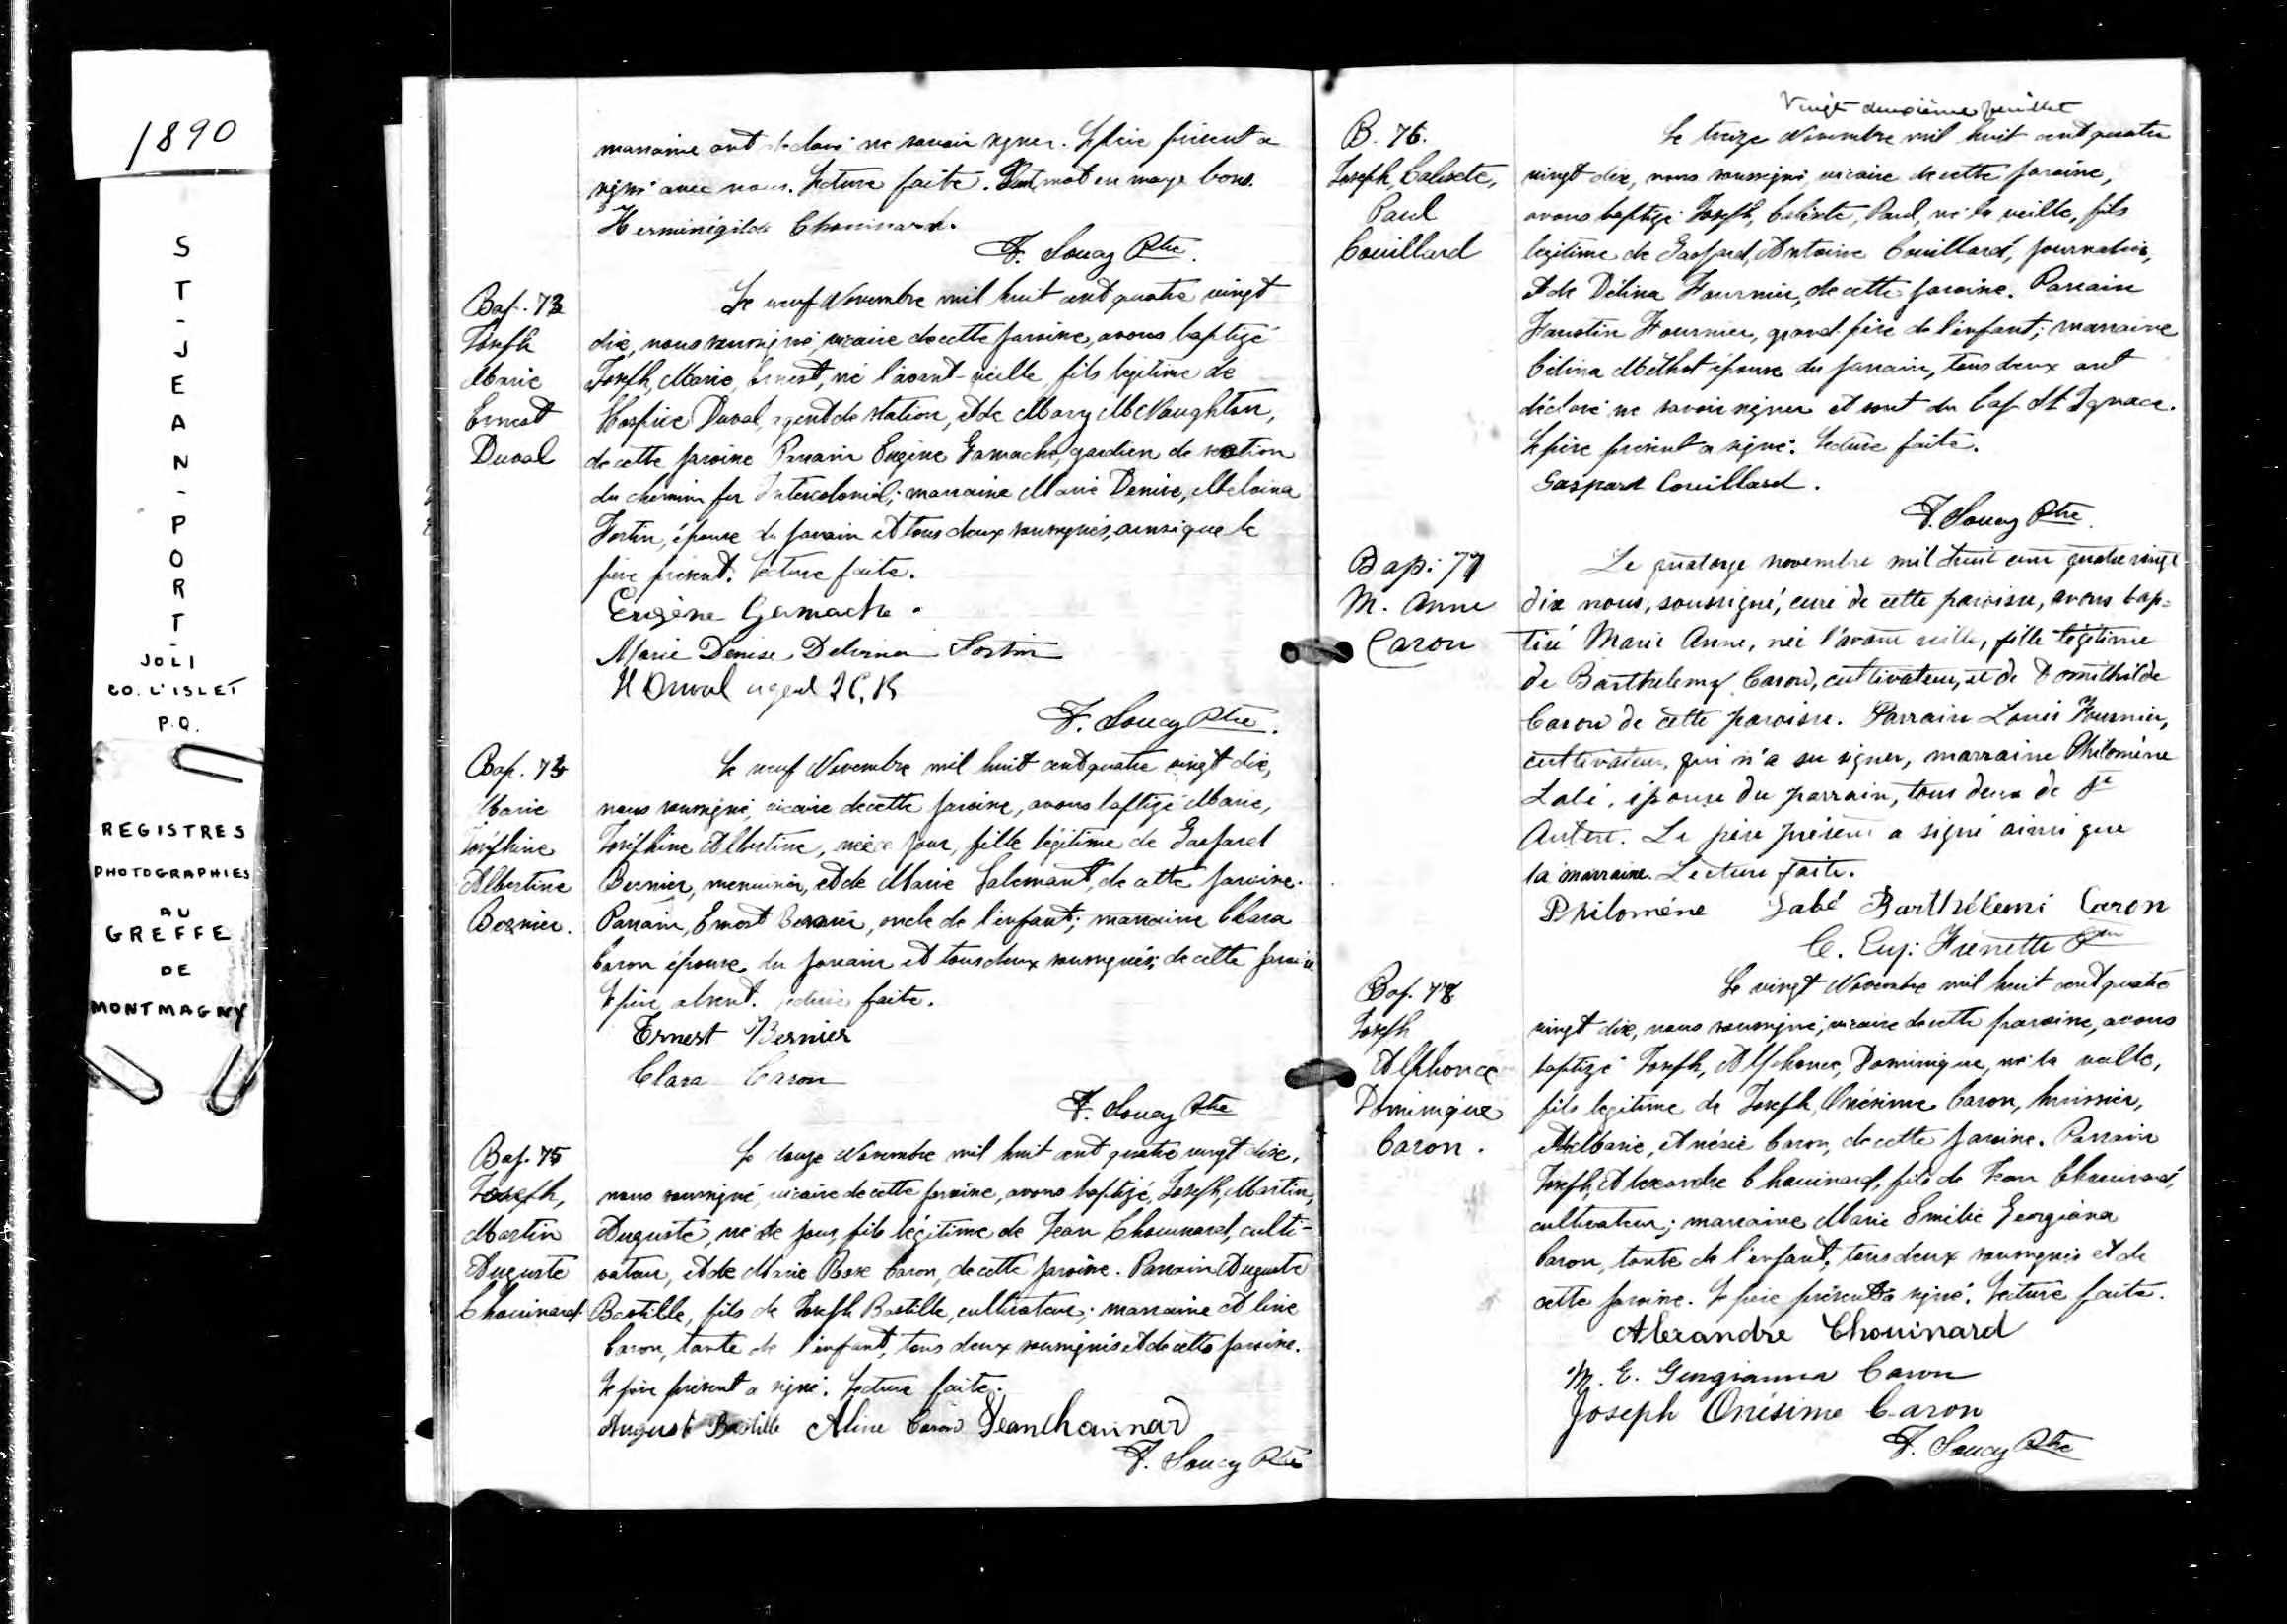 1890
ST-JEAN-PORT-
JOLI
CO. L'ISLET
P.Q.
REGISTRES
PHOTOGRAPHIES
AU
GREFFE
DE
MONTMAGNY
marraine ont déclaré ne savoir signer. Le père présent a
signé avec nous. Lecture faite. mot en marge bons.
Herménégilde Chouinard.
F. Soucy Ptre.
Bap. 73
Joseph
Marie
Ernest
Duval
Le neuf Novembre mil huit cent quatre vingt
dix, nous soussigné, vicaire de cette paroisse, avons baptizé
Joseph, Marie, Ernest, né l'avant-veille, fils légitime de
Hospice Duval, agent de station, et de Mary McNaughton,
de cette paroisse Parrain Eugène Gamache, gardien de section
du chemin fer Intercolonial; marraine Marie Denise, Melvina
Fortin, épouse du parrain et tous deux soussignés, ainsi que le
père présent. Lecture faite.
Eugène Gamache.
Marie Denise Delvina Fortin
H Duval agent I.C.R
F. Soucy Ptre.
Bap. 74
Marie
Joséphine
Albertine
Bernier.
Le neuf Novembre mil huit cent quatre vingt dix,
nous soussigné, vicaire de cette paroisse, avons baptizé Marie,
Joséphine Albertine, née ce jour, fille légitime de Gaspard
Bernier, menuisier, et de Marie Talemant, de cette paroisse.
Parrain, Ernest Bernier, oncle de l'enfant; marraine Clara
Caron épouse du parrain et tous deux soussignés; de cette paroisse
Le père absent. Lecture faite.
Ernest Bernier
Clara Caron
F. Soucy Ptre
Bap. 75
Joseph,
Martin
Auguste
Chouinard.
Le douze Novembre mil huit cent quatre vingt dix,
nous soussigné, vicaire de cette paroisse, avons baptizé, Joseph, Martin,
Auguste, né ce jour, fils légitime de Jean Chouinard, culti-
vateur, et de Marie Rose Caron, de cette paroisse. Parrain Auguste
Bastille, fils de Joseph Bastille, cultivateur; marraine Aline
Caron, tante de l'enfant, tous deux soussignés et de cette paroisse.
Le père présent a signé. Lecture faite.
Auguste Bastille Aline Caron Jean Chouinard
F. Soucy Ptre
Vingt deuxième feuillet
B. 76.
Joseph, Calixte,
Paul
Couillard
Le treize Novembre mil huit cent quatre
vingt dix, nous soussigné, vicaire de cette paroisse,
avons baptizé Joseph, Calixte, Paul, né la veille, fils
légitime de Gaspard, Antoine Couillard, journalier,
et de Délina Fournier, de cette paroisse. Parrain
Faustin Fournier, grand père de l'enfant; marraine
Célina Méthot épouse du parrain, tous deux ont
déclaré ne savoir signer et sont du Cap St Ignace.
Le père présent a signé. Lecture faite.
Gaspard Couillard.
F. Soucy Ptre.
Bap: 77
M. Anne
Caron
Le quatorze novembre mil huit cent quatre vingt
dix nous, soussigné, curé de cette paroisse, avons bap-
tisé Marie Anne, née l'avant veille, fille légitime
de Barthelemy Caron, cultivateur, et de Domithilde
Caron de cette paroisse. Parrain Louis Fournier,
cultivateur, qui n'a su signer, marraine Philomène
Labé, épouse du parrain, tous deux de St
Aubert. Le père présent a signé ainsi que
la marraine. Lecture faite.
Philomène Labé Barthélemi Caron
C. Eug: Frenette Ptre
Bap. 78
Joseph
Alphonce
Dominique
Caron.
Le vingt Novembre mil huit cent quatre
vingt dix, nous soussigné, vicaire de cette paroisse, avons
baptizé Joseph, Alphonce, Dominique, né la veille,
fils légitime de Joseph, Onésime Caron, huissier,
et Marie, Caron, de cette paroisse. Parrain
Joseph, Alexandre Chouinard, fils de Jean Chouinard,
cultivateur; marraine Marie Emilie Georgiana
Caron, tante de l'enfant; tous deux soussignés et de
cette paroisse. Le père présent a signé. Lecture faite.
Alexandre Chouinard
M. E. Georgianna Caron
Joseph Onésime Caron
F. Soucy Ptre